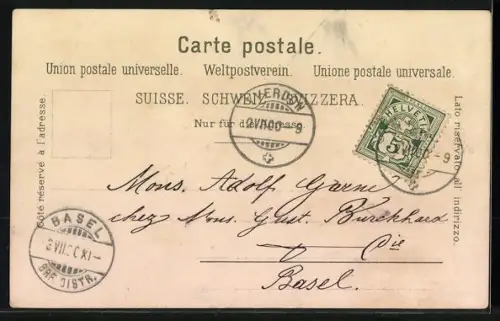 Carte postale.
Union postale universelle. Weltpostverein. Unione postale universale.
SUISSE. SCHWEIZ. SVIZZERA.
Nur für die Adresse.
Côté réservé à l'adresse.
Lato riservato all indirizzo.
YVERDON
2 VII 00 - 9
HELVETIA
5
- 9
Mons. Adolf
chez Mons. Gust. Burckhard
& Cie
Basel.
BASEL
2 VII 00 XI -
BRF. DISTR.